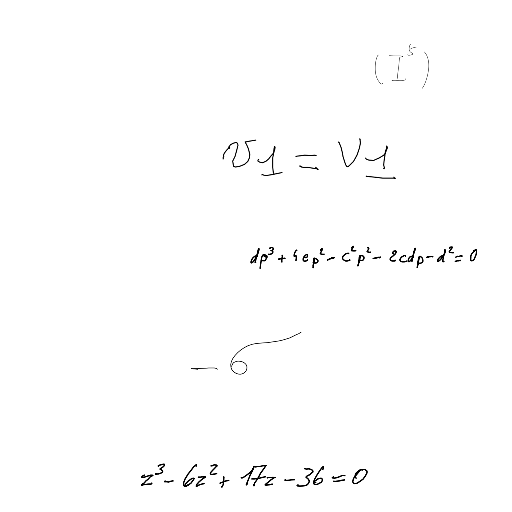 (I⁵)
v1 = V1
dp³ + 4ep² - c²p² - 2cdp - d² = 0
- σ
z³ - 6z² + 17z - 36 = 0